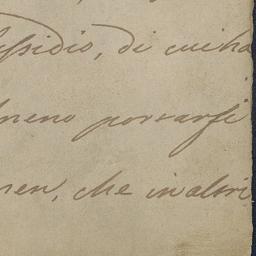 ssidio, di cui ha
meno portarsi
men, che in altri